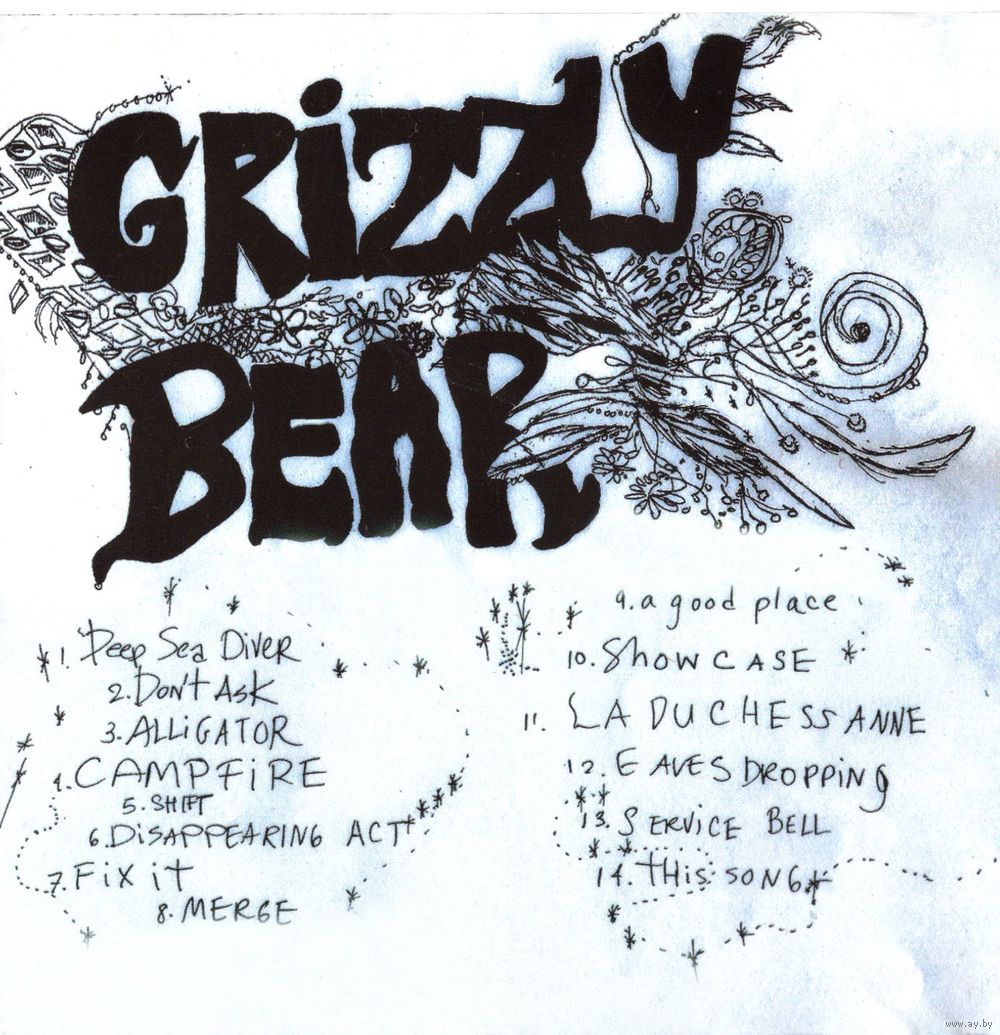 GRiZZLY
BEAR
1. Deep Sea DiVER
2. DoN't Ask
3. ALLiGATOR
4. CAMPFiRE
5. SHiFT
6. DiSAPPEARiNG ACT
7. Fix iT
8. MERGE
9. a good place
10. SHOWCASE
11. LA DUCHESS ANNE
12. EAVESDROPPiNg
13. SERViCE BELL
14. THiS SONG
www.ay.by